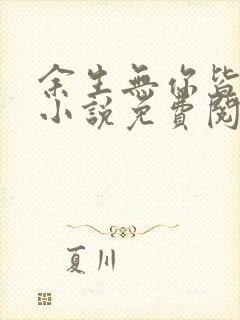 余生無你皆
小說免費閱
夏川